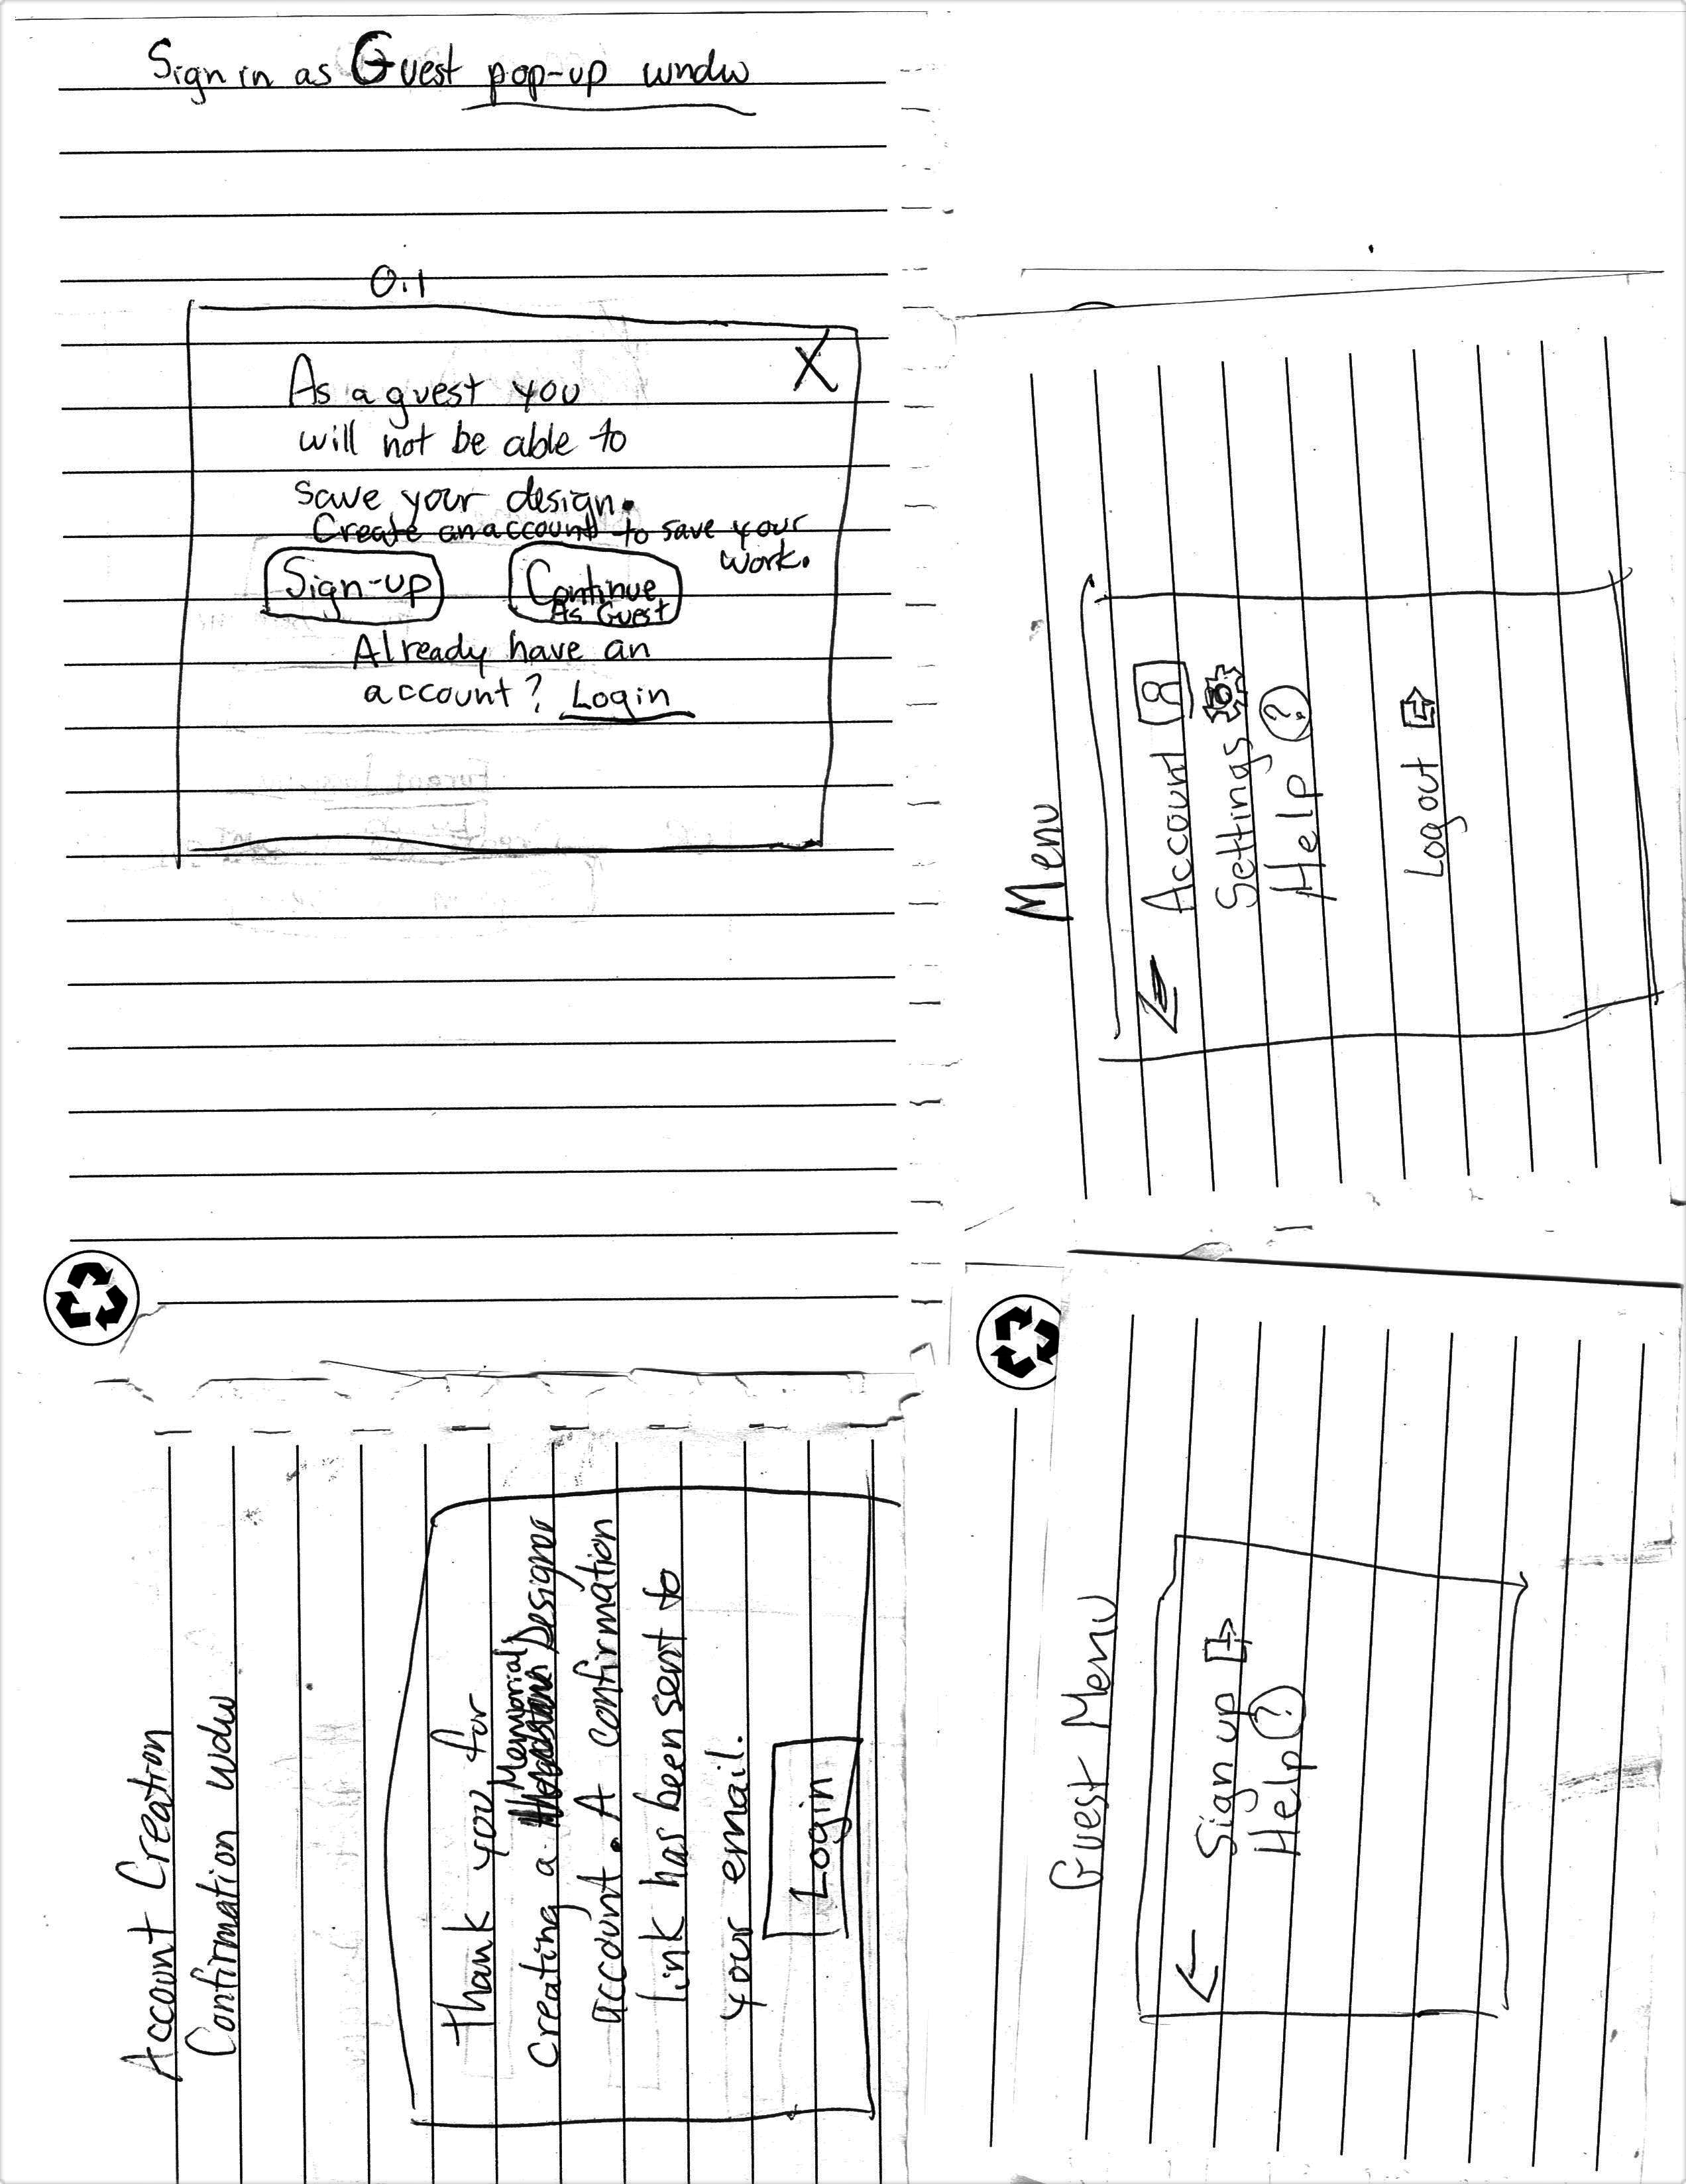 Sign in as Guest pop-up wndw
0.1
X
As a guest you
will not be able to
save your design.
Create an account to save your
work.
Sign-up
Continue
As Guest
Already have an
account? Login
Menu
Account
Settings
Help ?
Logout
Account Creation
Confirmation wdw
Thank you for
Memorial
creating a Designer
account. A confirmation
link has been sent to
your email.
Login
Guest Menu
Sign up
Help ?